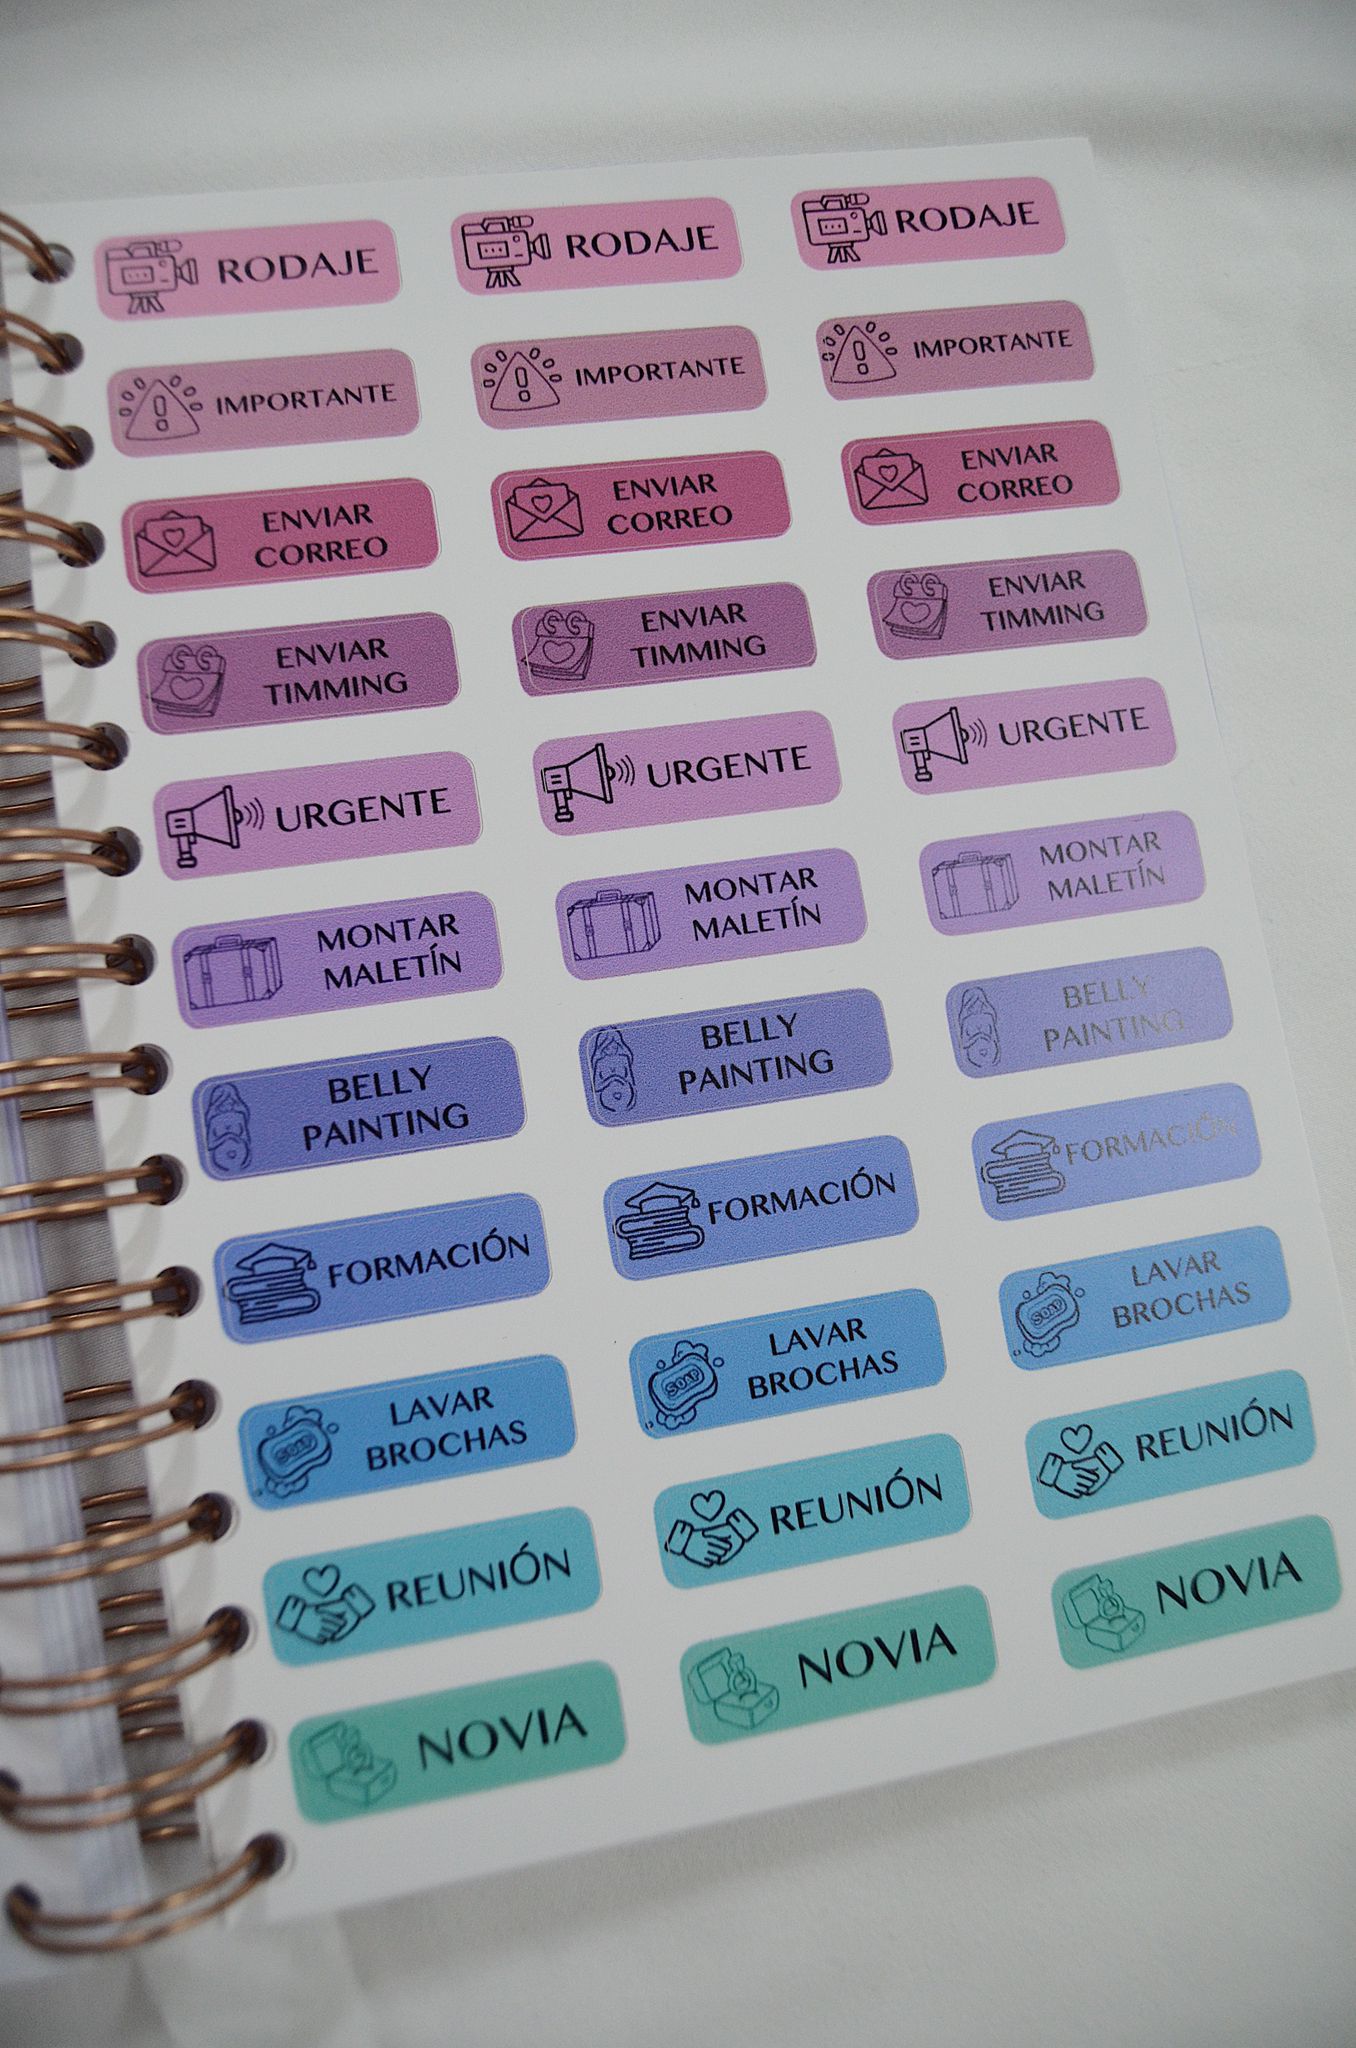 RODAJE RODAJE RODAJE
IMPORTANTE IMPORTANTE IMPORTANTE
ENVIAR ENVIAR ENVIAR
CORREO CORREO CORREO
ENVIAR ENVIAR ENVIAR
TIMMING TIMMING TIMMING
URGENTE URGENTE URGENTE
MONTAR MONTAR MONTAR
MALETÍN MALETÍN MALETÍN
BELLY BELLY BELLY
PAINTING PAINTING PAINTING
FORMACIÓN FORMACIÓN FORMACIÓN
LAVAR LAVAR LAVAR
SOAP BROCHAS SOAP BROCHAS SOAP BROCHAS
REUNIÓN REUNIÓN REUNIÓN
NOVIA NOVIA NOVIA